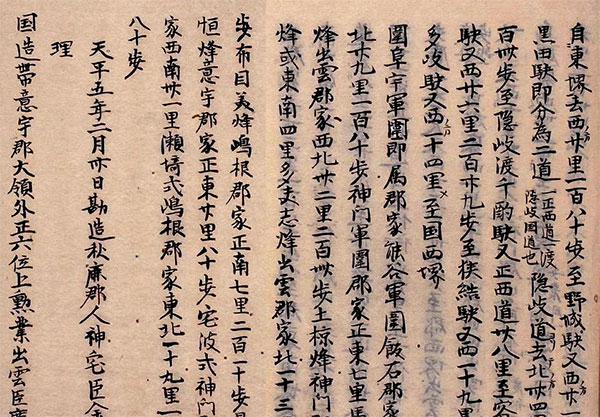 自東堺去西廿里一百八十歩至野城駅又西廿
黒田駅即分為二道一正西道一渡隠岐国道也隠岐道去北卅四
百卌歩至隠岐渡千酌駅又正西道卅八里至宍
駅又西廿六里二百廿九歩至狭結駅又西一十九里
多岐駅又西一十四里至国西堺
圍阜宇軍團即属郡家熊谷軍團飯石郡家
北廿九里一百八十歩神門軍團郡家正東七里馬
烽出雲郡家西北卅二里二百卌歩土椋烽神門
烽或東南四里多夫志烽出雲郡家北一十三
歩布自美烽嶋根郡家正南七里二百一十歩
恒烽意宇郡家正東廿里八十歩宅波式神門
家西南卅一里瀬埼式嶋根郡家東北一十九里一
八十歩
天平五年二月卅日勘造秋鹿郡人神宅臣金
理
国造帯意宇郡大領外正六位上勲業出雲臣廣